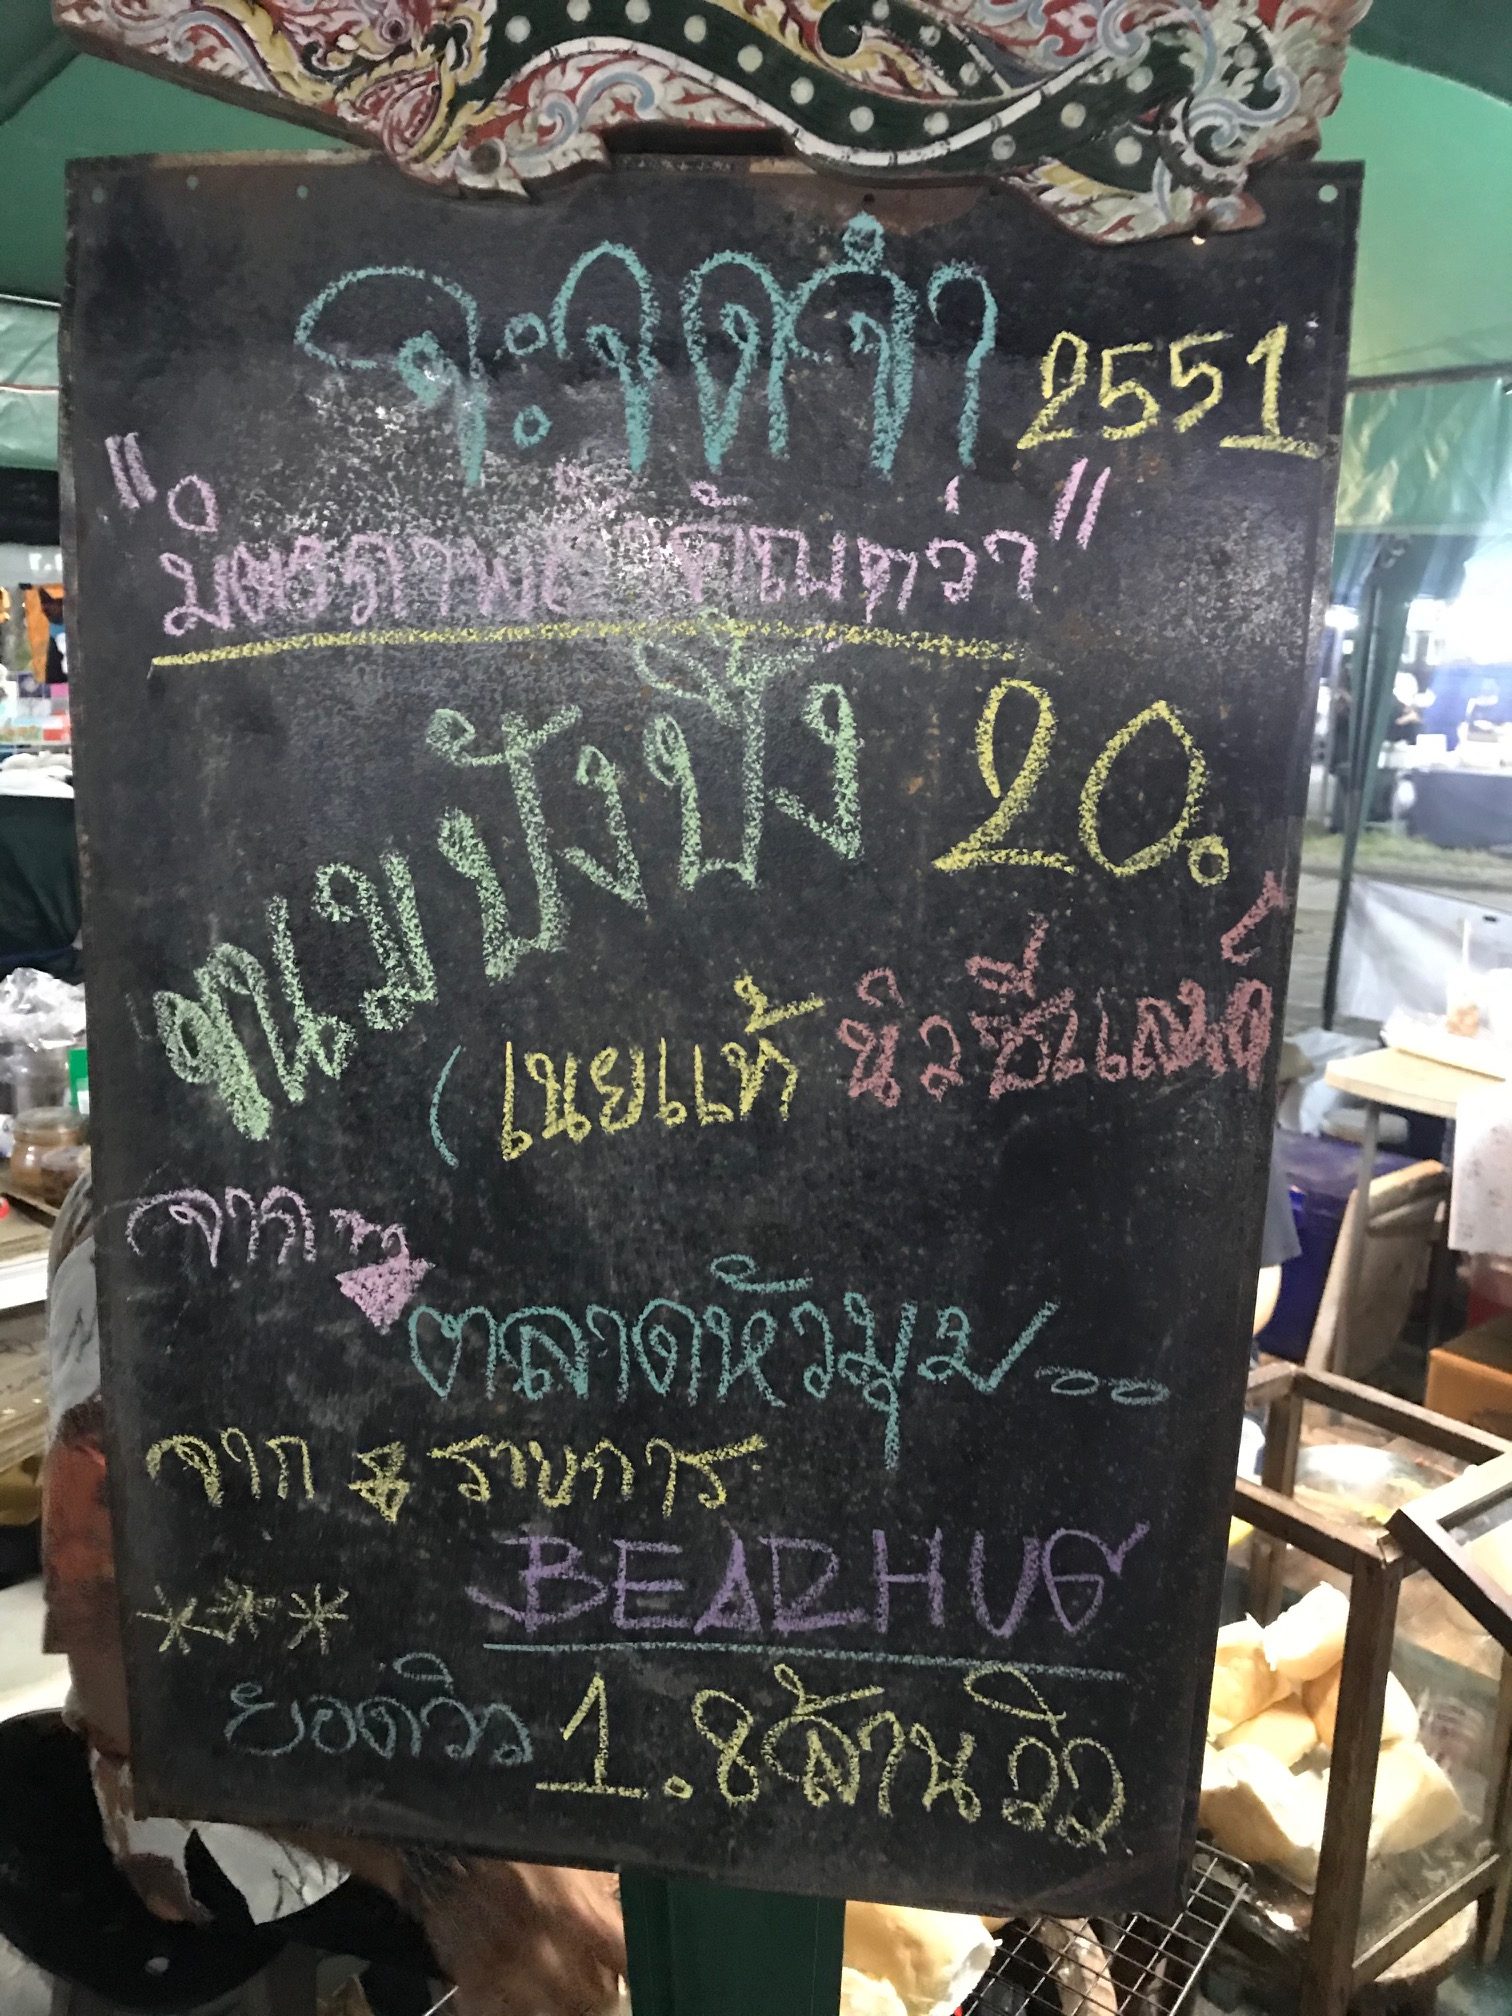 จะจดจำ 2551
"มิตรภาพสำคัญกว่า"
ขนมปังปิ้ง 20.
(เนยแท้ นิวซีแลนด์
จาก
ตลาดหัวมุม...
จาก รายการ
BEARHUG
*** ยอดวิว 1.8 ล้านวิว